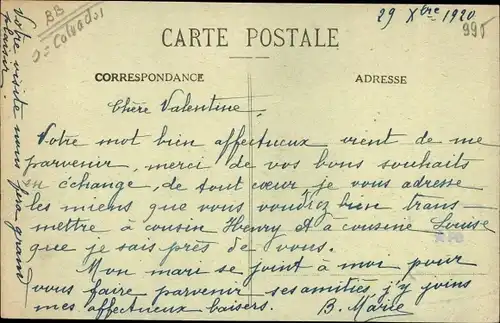 29 Xbre 1920
991
BB
Calvados
CARTE POSTALE
CORRESPONDANCE
ADRESSE
Chère Valentine,
Votre mot bien affectueux vient de me
parvenir, merci de vos bons souhaits
en échange, de tout cœur je vous adresse
les miens que vous voudrez bien trans-
mettre à cousin Henry et à cousine Louise
que je sais près de vous.
Mon mari se joint à moi pour
vous faire parvenir ses amitiés j'y joins
mes affectueux baisers. B. Marie
Votre visite nous fera grand
plaisir.